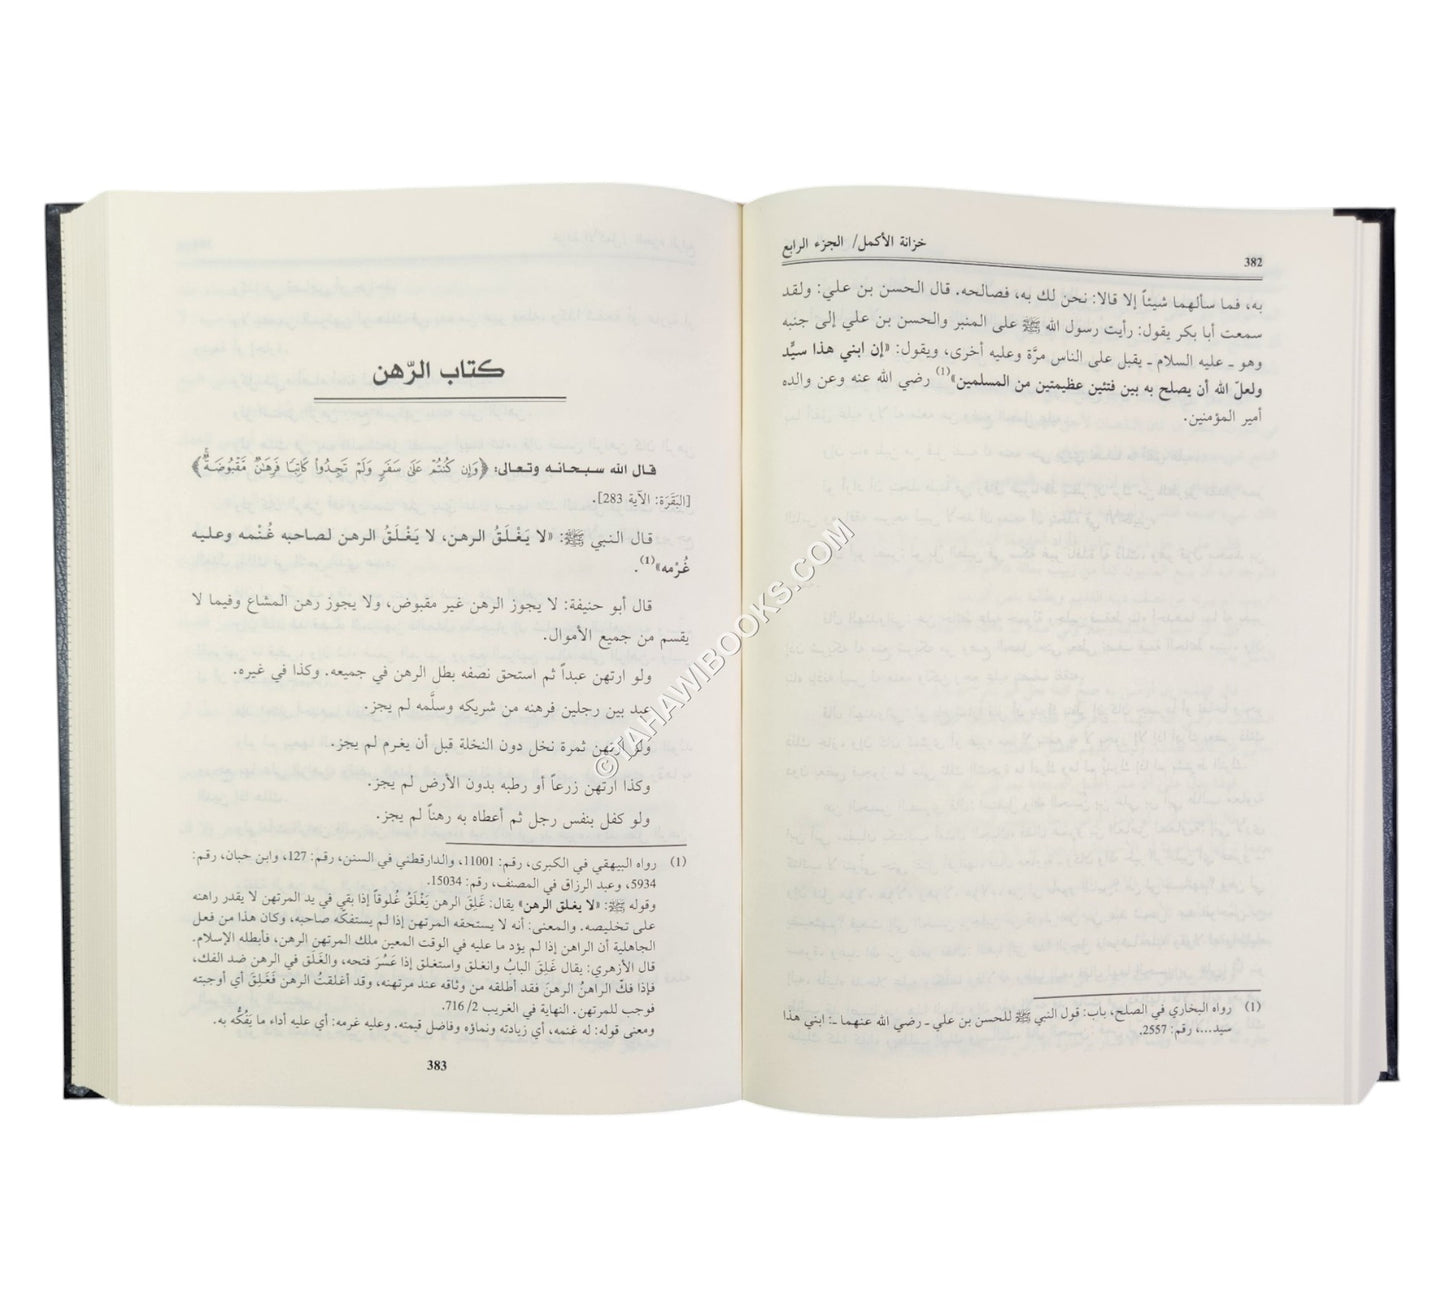 382
خزانة الأكمل/ الجزء الرابع
به، فما سألهما شيئاً إلا قالا: نحن لك به، فصالحه. قال الحسن بن علي: ولقد
سمعت أبا بكر يقول: رأيت رسول الله ﷺ على المنبر والحسن بن علي إلى جنبه
وهو ـ عليه السلام ـ يقبل على الناس مرَّة وعليه أخرى، ويقول: «إن ابني هذا سيِّد
ولعلّ الله أن يصلح به بين فئتين عظيمتين من المسلمين»(1) رضي الله عنه وعن والده
أمير المؤمنين.
(1) رواه البخاري في الصلح، باب: قول النبي ﷺ للحسن بن علي ـ رضي الله عنهما ـ: ابني هذا
سيد...، رقم: 2557.
كتاب الرّهن
قال الله سبحانه وتعالى: ﴿وَإِن كُنتُمْ عَلَىٰ سَفَرٍ وَلَمْ تَجِدُوا كَاتِبًا فَرِهَٰنٌ مَّقْبُوضَةٌ﴾
[البَقَرَة: الآية 283].
قال النبي ﷺ: «لا يَغْلَقُ الرهن، لا يَغْلَقُ الرهن لصاحبه غُنْمه وعليه
غُرْمه»(1).
قال أبو حنيفة: لا يجوز الرهن غير مقبوض، ولا يجوز رهن المشاع وفيما لا
يقسم من جميع الأموال.
ولو ارتهن عبداً ثم استحق نصفه بطل الرهن في جميعه. وكذا في غيره.
عبد بين رجلين فرهنه من شريكه وسلَّمه لم يجز.
ولو ارتهن ثمرة نخل دون النخلة قبل أن يغرم لم يجز.
وكذا ارتهن زرعاً أو رطبه بدون الأرض لم يجز.
ولو كفل بنفس رجل ثم أعطاه به رهناً لم يجز.
(1) رواه البيهقي في الكبرى، رقم: 11001، والدارقطني في السنن، رقم: 127، وابن حبان، رقم:
5934، وعبد الرزاق في المصنف، رقم: 15034.
وقوله ﷺ: «لا يغلق الرهن» يقال: غَلِقَ الرهن يَغْلَقُ غُلوقاً إذا بقي في يد المرتهن لا يقدر راهنه
على تخليصه. والمعنى: أنه لا يستحقه المرتهن إذا لم يستفكّه صاحبه، وكان هذا من فعل
الجاهلية أن الراهن إذا لم يؤد ما عليه في الوقت المعين ملك المرتهن الرهن، فأبطله الإسلام.
قال الأزهري: يقال غَلِقَ البابُ وانغلق واستغلق إذا عَسُرَ فتحه، والغَلَق في الرهن ضد الفك،
فإذا فكّ الراهنُ الرهنَ فقد أطلقه من وثاقه عند مرتهنه، وقد أغلقتُ الرهن فَغَلِقَ أي أوجبته
فوجب للمرتهن. النهاية في الغريب 2/ 716.
ومعنى قوله: له غنمه، أي زيادته ونماؤه وفاضل قيمته. وعليه غرمه: أي عليه أداء ما يَفُكُّه به.
383
©TAHAWIBOOKS.COM